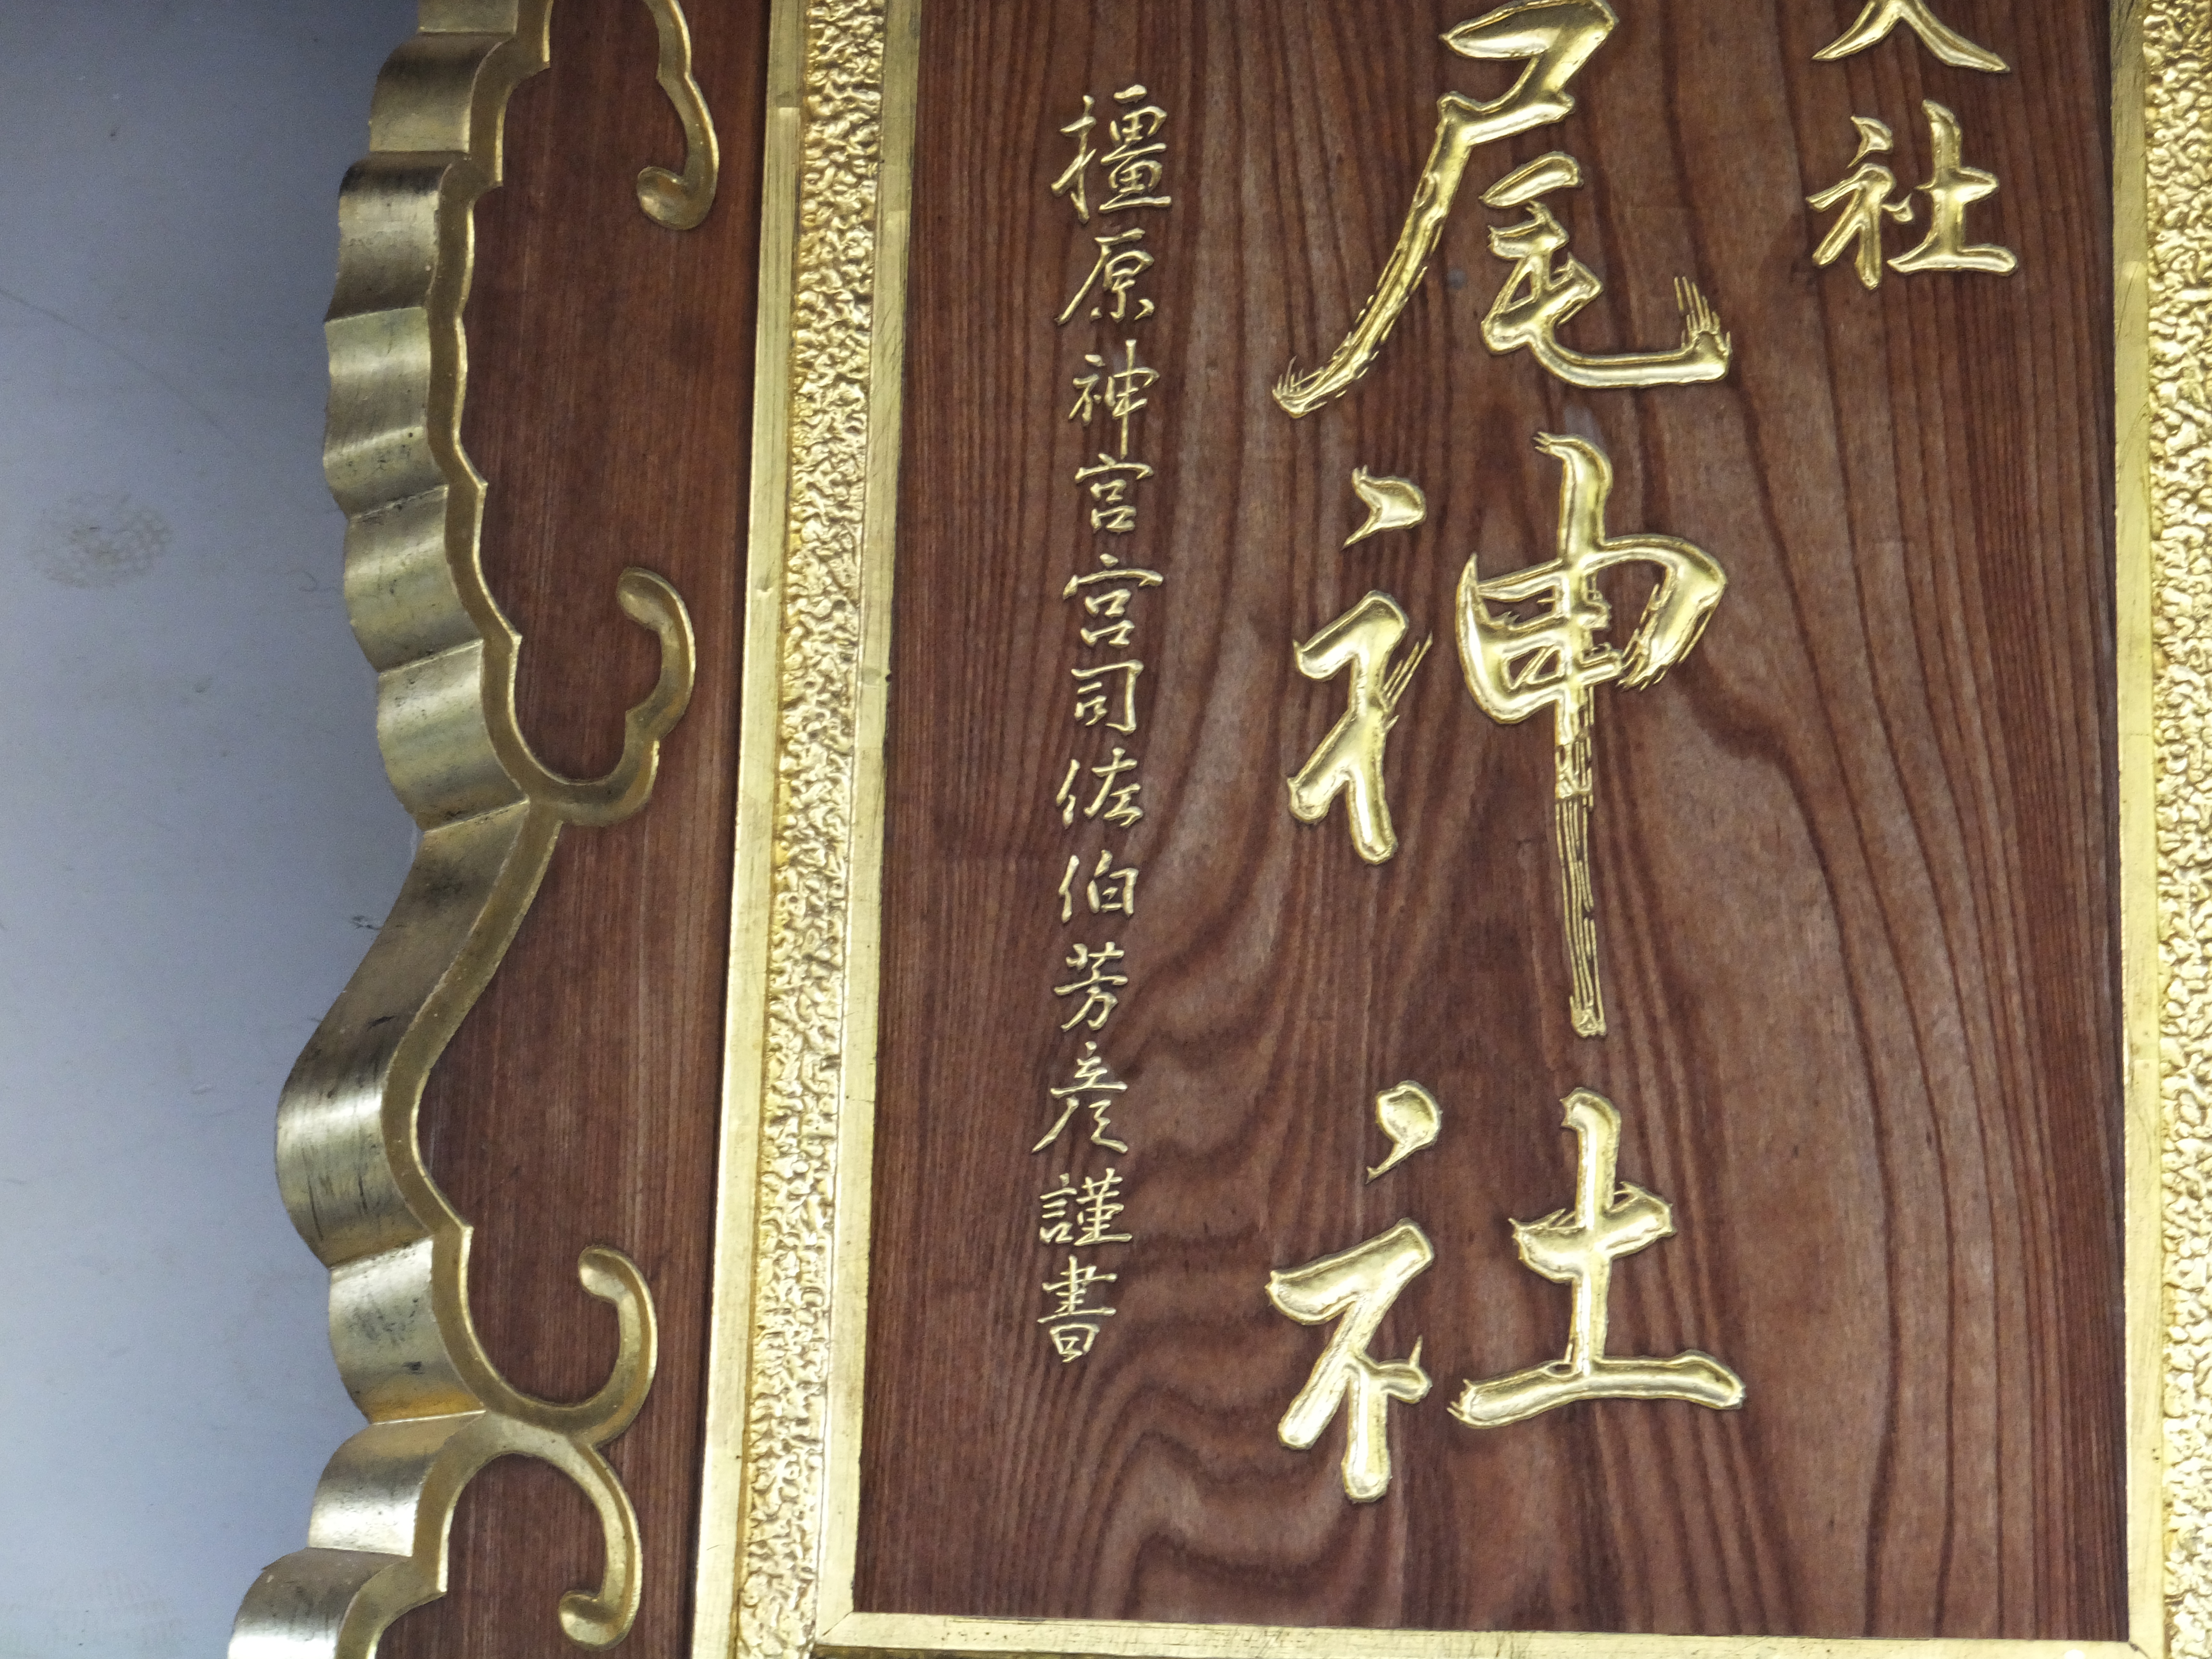 社
尾神社
橿原神宮宮司佐伯芳彦謹書